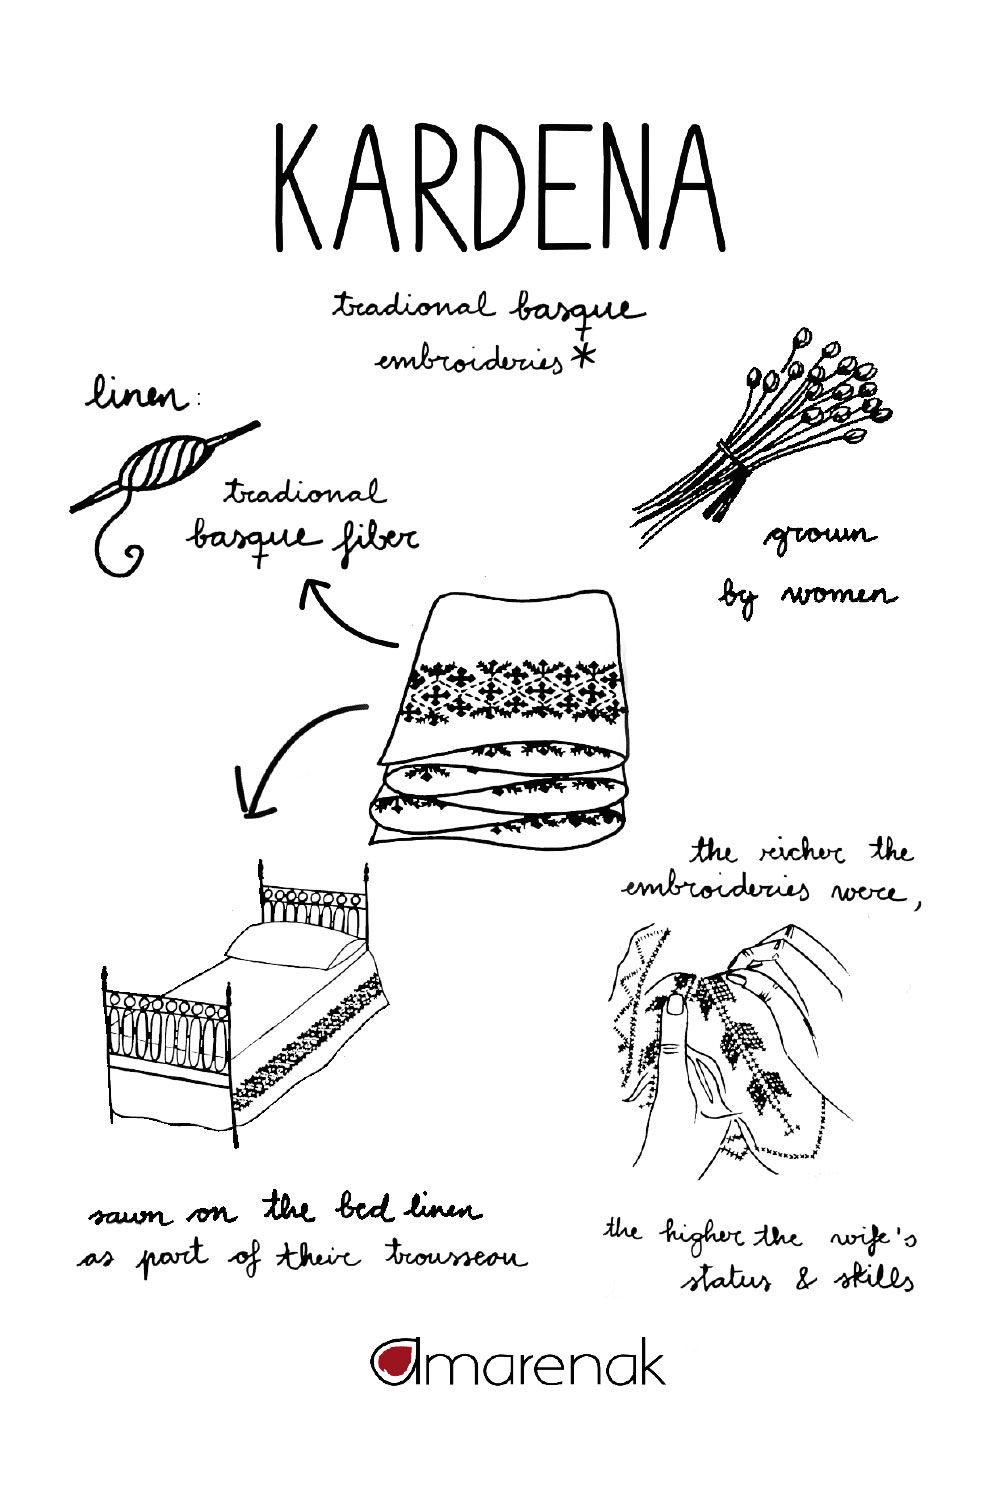 KARDENA
tradional basque
embroideries*
linen:
tradional
basque fiber
grown
by women
the richer the
embroideries were,
sawn on the bed linen
as part of their trousseau
the higher the wife's
status & skills
amarenak